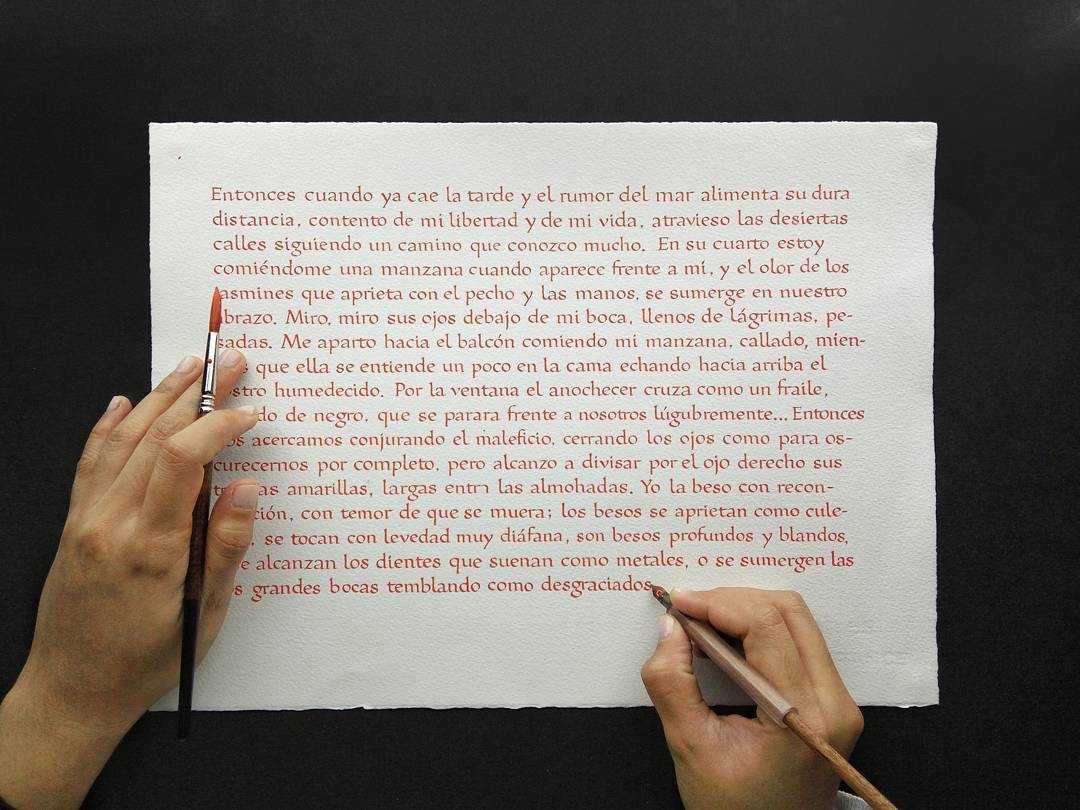 Entonces cuando ya cae la tarde y el rumor del mar alimenta su dura
distancia, contento de mi libertad y de mi vida, atravieso las desiertas
calles siguiendo un camino que conozco mucho. En su cuarto estoy
comiéndome una manzana cuando aparece frente a mí, y el olor de los
asmines que aprieta con el pecho y las manos, se sumerge en nuestro
brazo. Miro, miro sus ojos debajo de mi boca, llenos de lágrimas, pe-
sadas. Me aparto hacia el balcón comiendo mi manzana, callado, mien-
que ella se entiende un poco en la cama echando hacia arriba el
ostro humedecido. Por la ventana el anochecer cruza como un fraile,
do de negro, que se parara frente a nosotros lúgubremente... Entonces
os acercamos conjurando el maleficio, cerrando los ojos como para os-
curecernos por completo, pero alcanzo a divisar por el ojo derecho sus
as amarillas, largas entr las almohadas. Yo la beso con recon-
ción, con temor de que se muera; los besos se aprietan como cule-
, se tocan con levedad muy diáfana, son besos profundos y blandos,
e alcanzan los dientes que suenan como metales, o se sumergen las
s grandes bocas temblando como desgraciados